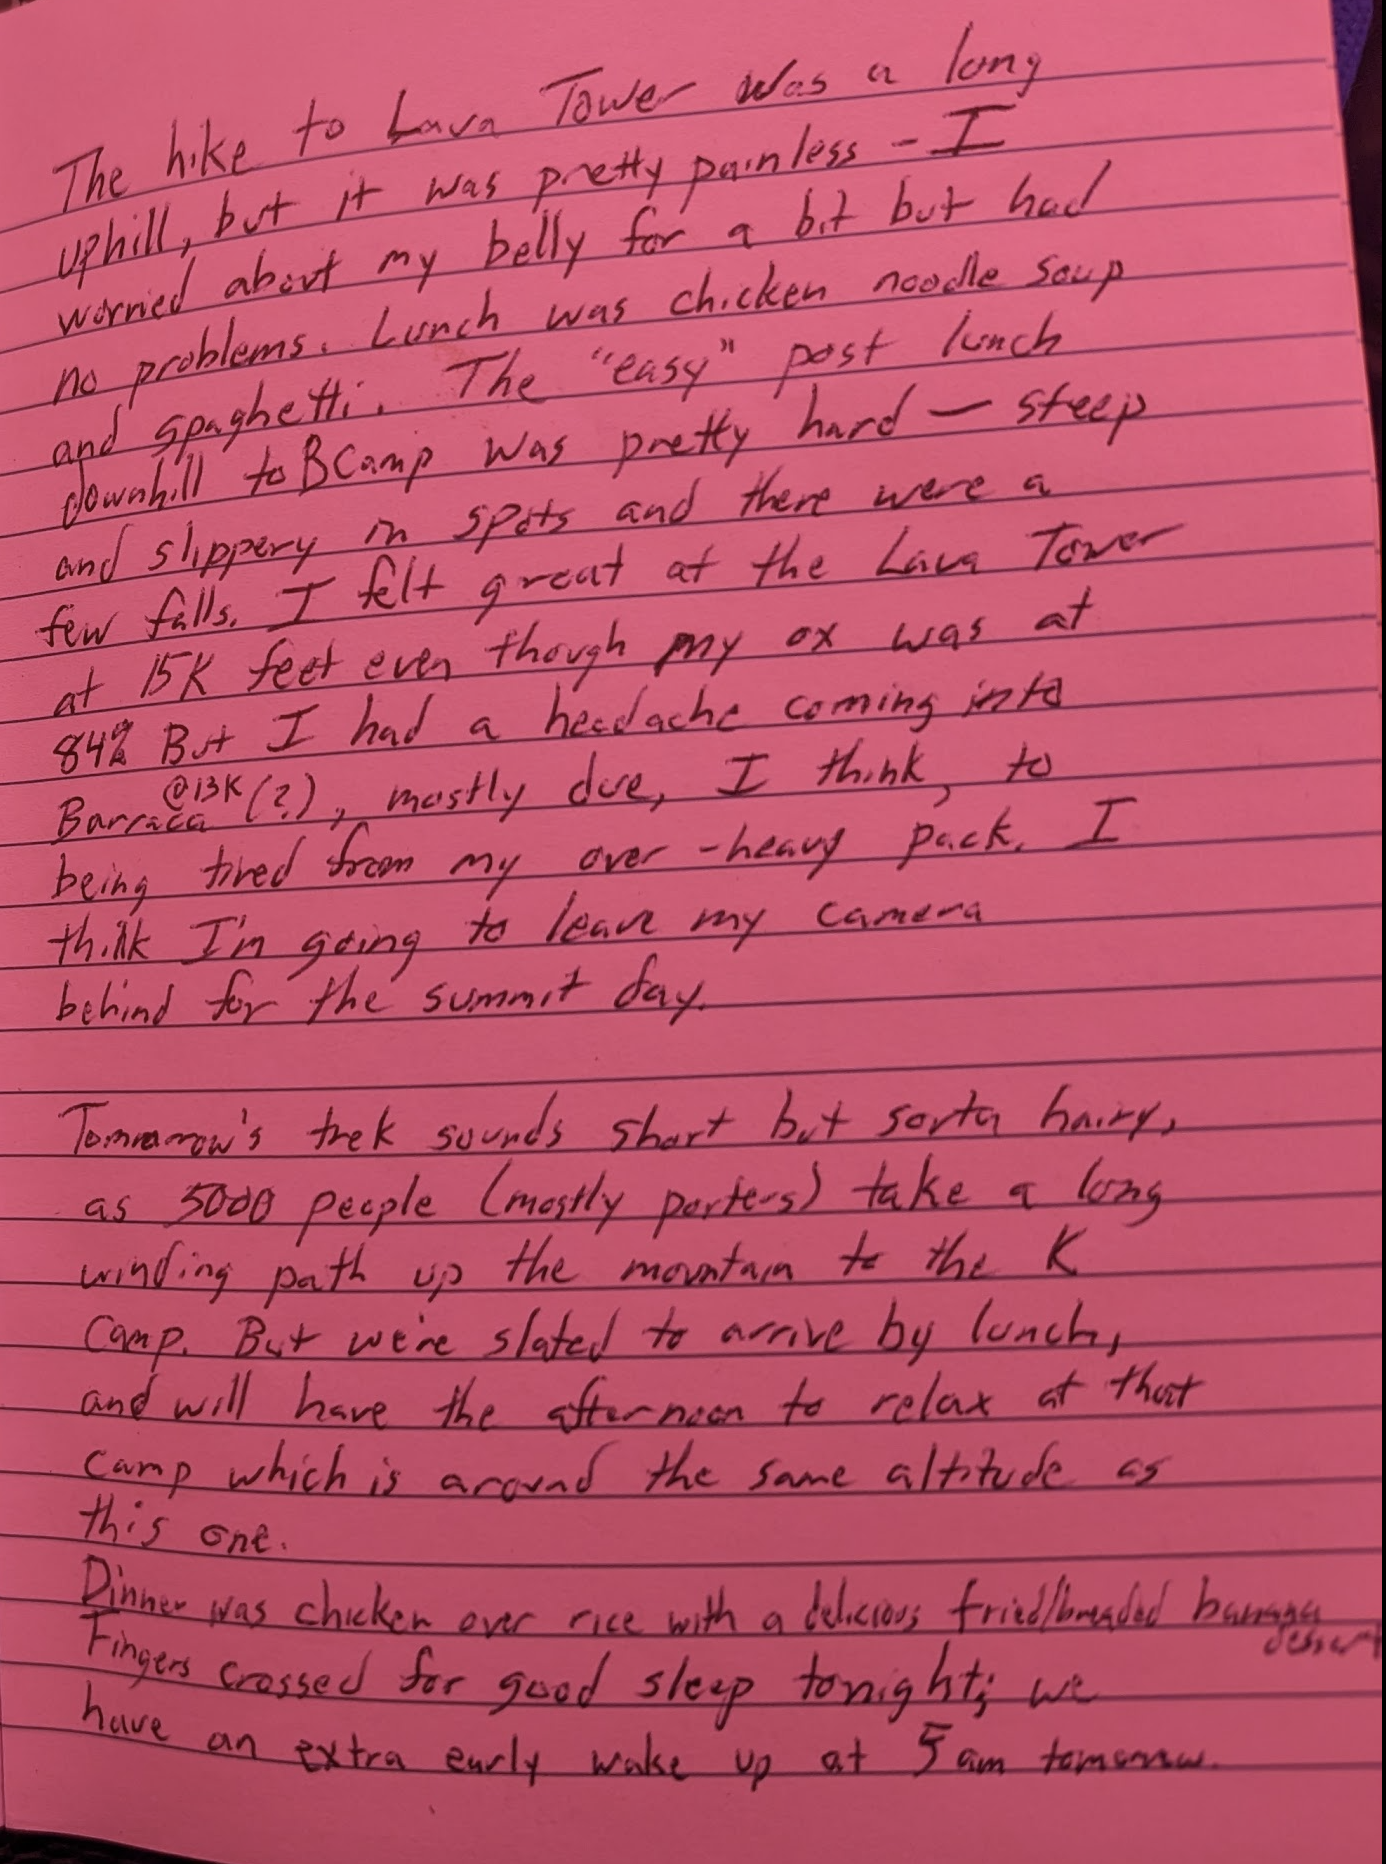 The hike to Lava Tower was a long
uphill, but it was pretty painless - I
worried about my belly for a bit but had
no problems. Lunch was chicken noodle soup
and spaghetti. The "easy" post lunch
downhill to BCamp was pretty hard - steep
and slippery in spots and there were a
few falls. I felt great at the Lava Tower
at 15K feet even though my ox was at
84% But I had a headache coming into
Barraca @13K (?), mostly due, I think, to
being tired from my over-heavy pack. I
think I'm going to leave my camera
behind for the summit day.
Tomorrow's trek sounds short but sorta hairy,
as 5000 people (mostly porters) take a long
winding path up the mountain to the K
Camp. But we're slated to arrive by lunch,
and will have the afternoon to relax at that
camp which is around the same altitude as
this one.
Dinner was chicken over rice with a delicious fried/breaded banana
dessert
Fingers crossed for good sleep tonight; we
have an extra early wake up at 5 am tomorrow.